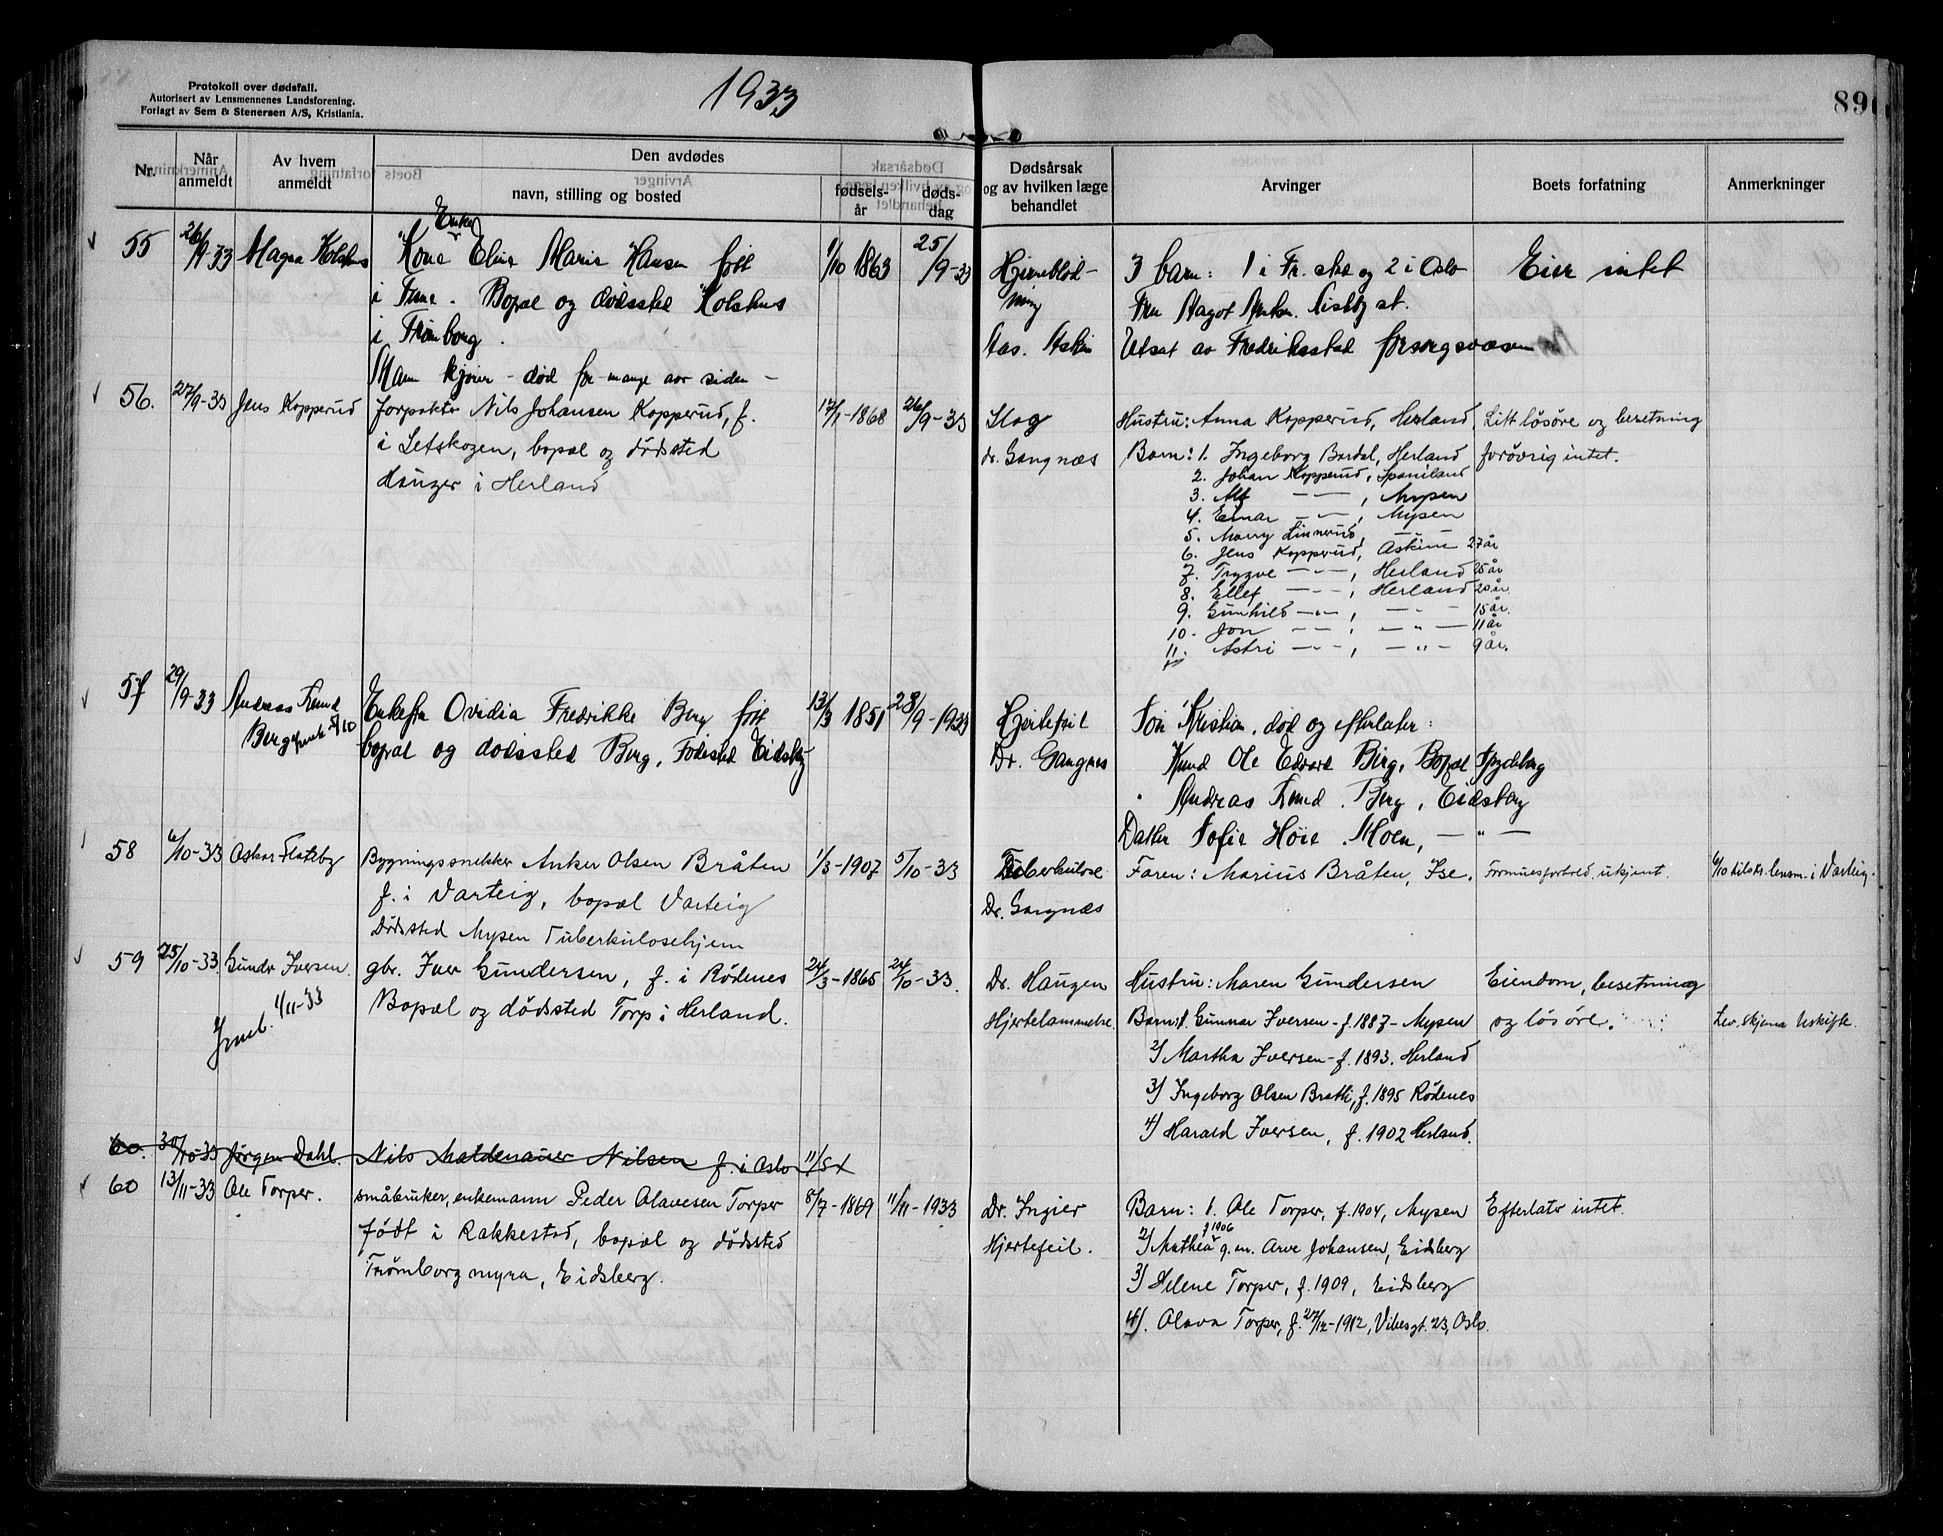 Protokoll over dødsfall.
Autorisert av Lensmennenes Landsforening.
Forlagt av Sem & Stenersen A/S, Kristiania.
1933
89
Nr.
Når anmeldt
Av hvem anmeldt
Den avdødes
navn, stilling og bosted
fødsels-år
døds-dag
Dødsårsak og av hvilken læge behandlet
Arvinger
Boets forfatning
Anmerkninger
55 26/9-33 Magna Kolshus
Enke
Kone Elise Marie Hansen født
i . Bopæl og dødssted Kolshus
i Trømborg.
Mann – død for mange aar siden –
1/10 1863 25/9-33
Hjerneblød-
ning
Aas. Askim
3 barn: 1 i Fr.stad og 2 i Oslo
Fru Magot st.
Utsat av Fredriksstad forsorgsvæsen
Eier intet
56. 27/9-33 Jens Kopperud
Forpakter Nils Johansen Kopperud, f.
i Setskogen, bopæl og dødssted
i Herland
17/1-1868 26/9-33
Slag
dr. Gangnæs
Hustru: Anna Kopperud, Herland.
Barn: 1. Ingeborg Bardal, Herland
2. Johan Kopperud, Spaniland
3. Alf —"—, Mysen
4. Einar —"—, Mysen
5. Mary Linnerud, —
6. Jens Kopperud, Askim 27 år
7. Trygve —"—, Herland 25 år
8. Ellef —"—, Herland 20 år.
9. Gunhild —"—, —"— 15 år.
10. Jon —"—, —"— 11 år
11. Astri —"—, —"— 9 år.
Litt løsøre og besetning
forøvrig intet.
57 29/9-33 Andreas Knud
Berg 5/10
Enkefru Ovidia Fredrikke Berg født
bopæl og dødssted Berg, Fødested Eidsberg
13/3 1851 28/9-1933
Hjertefeil
Dr. Gangnes
Søn Kristian, død og efterlater:
Knud Ole Edvard Berg, Bopæl Spydeberg
" Andreas Knud Berg, Eidsberg
Datter Sofie Høie Moen, —"—
58 6/10-33 Oskar Flateby
Bygningssnekker Anker Olsen Bråten
f. i Varteig, bopæl Varteig
Dødssted Mysen Tuberkulosehjem
1/3-1907 5/10-33
Tuberkulose
Dr. Gangnæs
Faren: Marius Bråten, Ise.
Formuesforhold ukjent.
6/10 tilskr. lensm. i Varteig.
59 25/10-33 Gundr Iversen.
1/11-33
gbr. Iver Gundersen, f. i Rødenes
Bopæl og dødssted Torp i Herland.
24/3-1865 24/10-33.
Dr. Haugen
Hjertelammelse
Hustru: Maren Gundersen
Barn: 1. Gunnar Iversen – f. 1887 – Mysen
2) Martha Iversen – f. 1893. Herland
3) Ingeborg Olsen Bratli, f. 1895 Rødenes
4) Harald Iversen, f. 1902 Herland.
Eiendom, besetning
og løsøre.
Lev. skjema Uskifte.
60. 30/10-33 Jørgen Dahl. Nils Nilsen f. i Oslo 11/5
60 13/11-33 Ole Torper.
småbruker, enkemann Peder Olavesen Torper
født i Rakkestad, bopæl og dødssted
Trømborgmyra, Eidsberg.
8/7-1869 11/11-1933
Dr. Ingier
Hjertefeil.
Barn: 1. Ole Torper, f. 1904, Mysen
f 1906
2) Mathea g.m. Arve Johansen, Eidsberg
3) Helene Torper, f. 1909, Eidsberg
4). Olava Torper, f. 27/12-1912, Vibesgt. 23, Oslo.
Efterlatr intet.